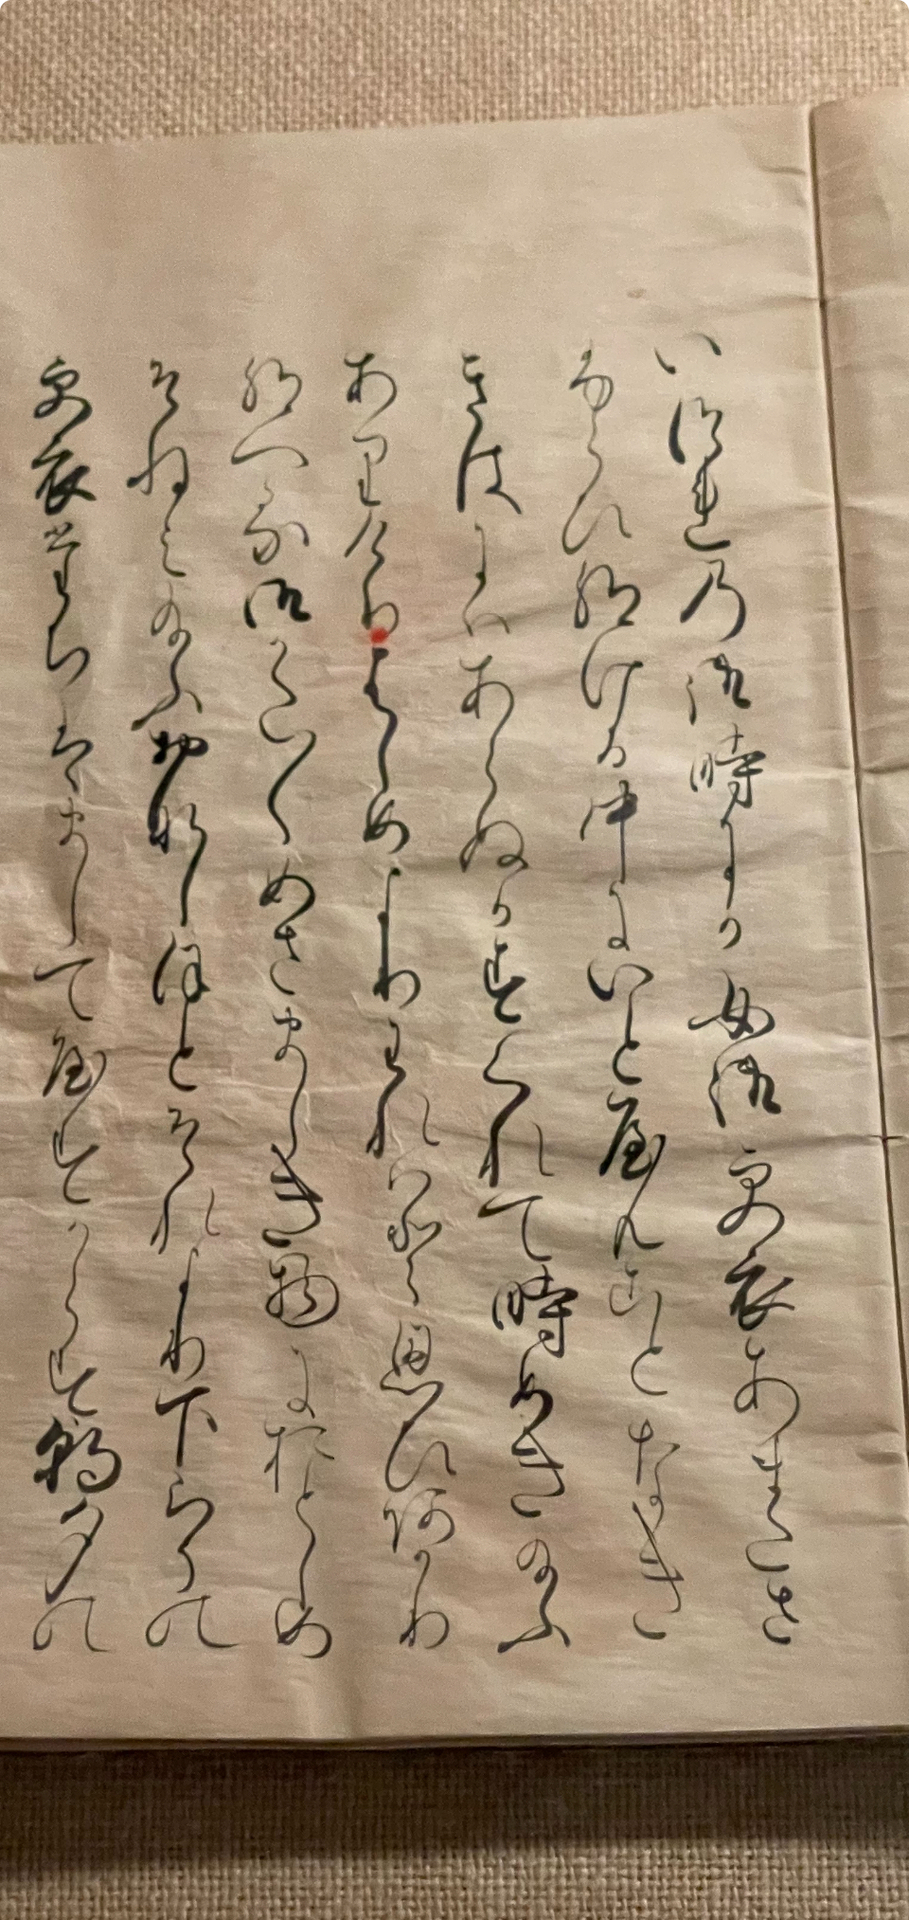 いつれの御時にか女御更衣あまたさ
ふらひ給ける中にいとやんことなき
きはにはあらぬかすくれて時めき給ふ
ありけりはしめよりわれはと思ひあかり
給へる御かた〳〵めさましき物におとしめ
そねみ給ふおなしほとそれより下らうの
更衣たちはましてやすからす朝夕の